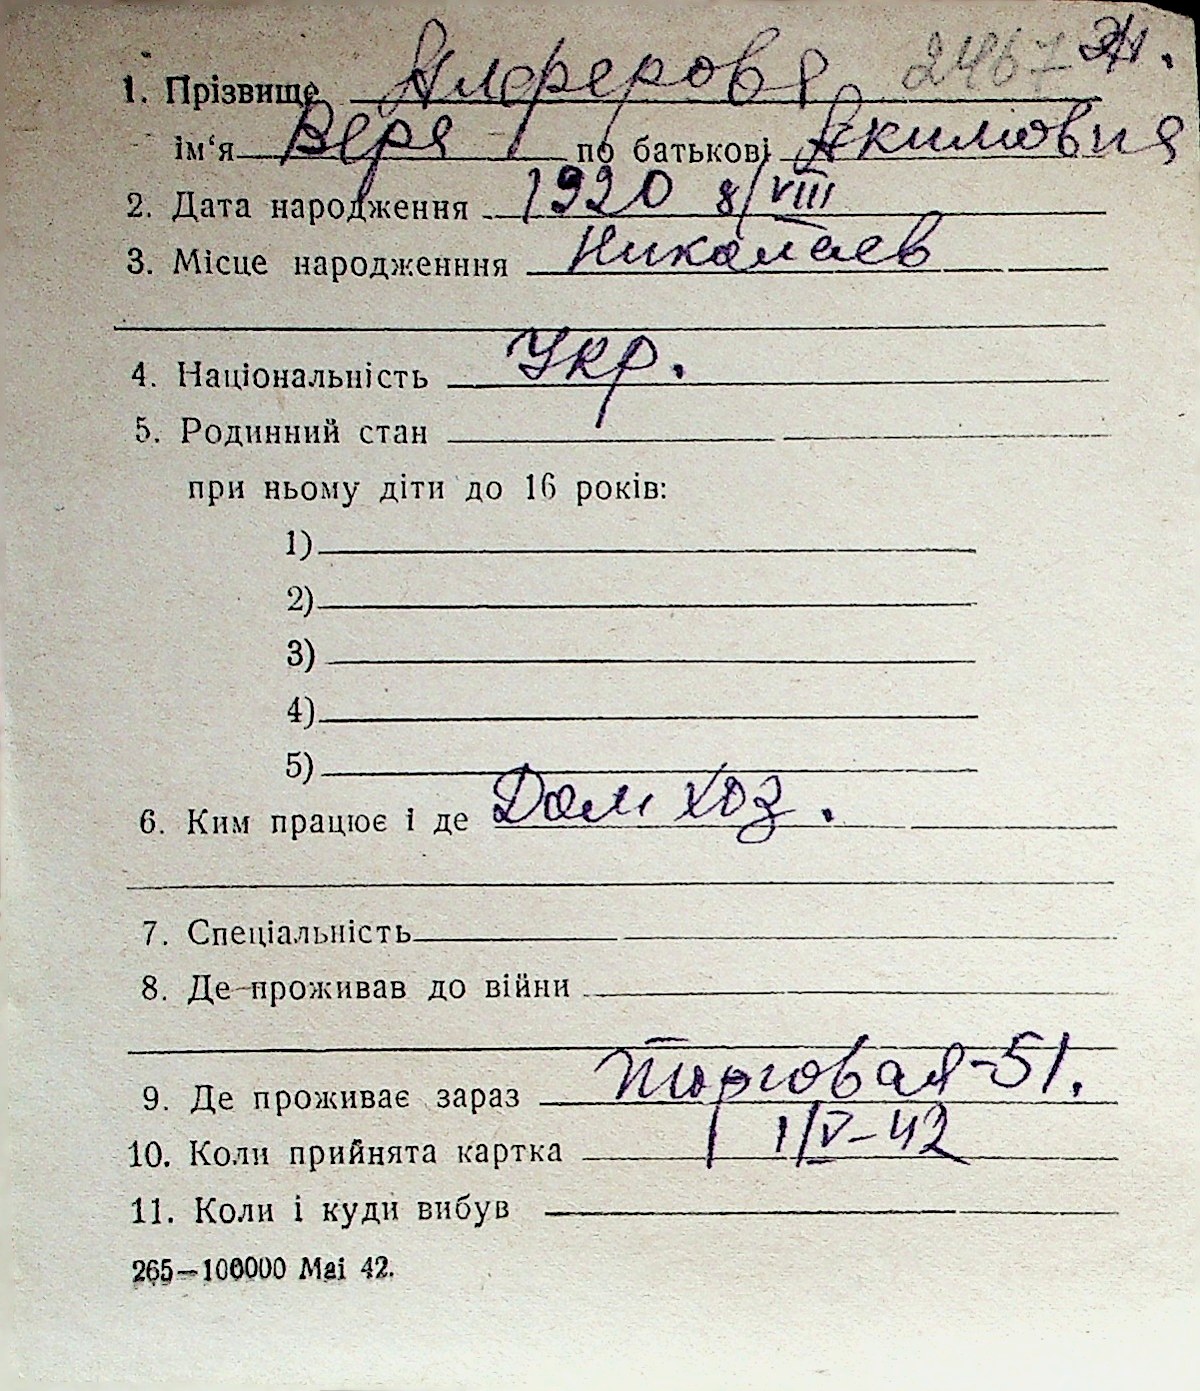 1. Прізвище Алферова 2467
ім‘я Вера по батькові Акимовна
2. Дата народження 1920 8/VIII
3. Місце народженння Николаев
4. Національність Укр.
5. Родинний стан
при ньому діти до 16 років:
1)
2)
3)
4)
5)
6. Ким працює і де Дом хоз.
7. Спеціальність
8. Де проживав до війни
9. Де проживає зараз Торговая-51.
10. Коли прийнята картка 1/V-42
11. Коли і куди вибув
265—100000 Mai 42.